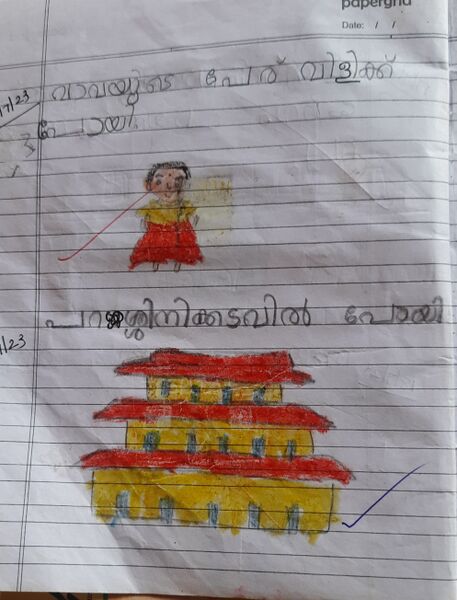 papergrid
Date: / /
/7/23
വാവയുടെ പേര് വിളിക്ക്
പോയി.
പറശ്ശിനിക്കടവിൽ പോയി
/23